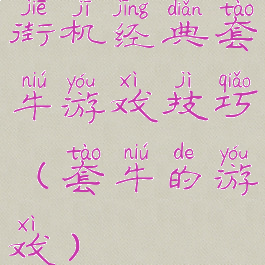 jiē jī jīng diǎn tào
街机经典套
niú yóu xì jì qiǎo
牛游戏技巧
tào niú de yóu
（套牛的游
xì
戏）